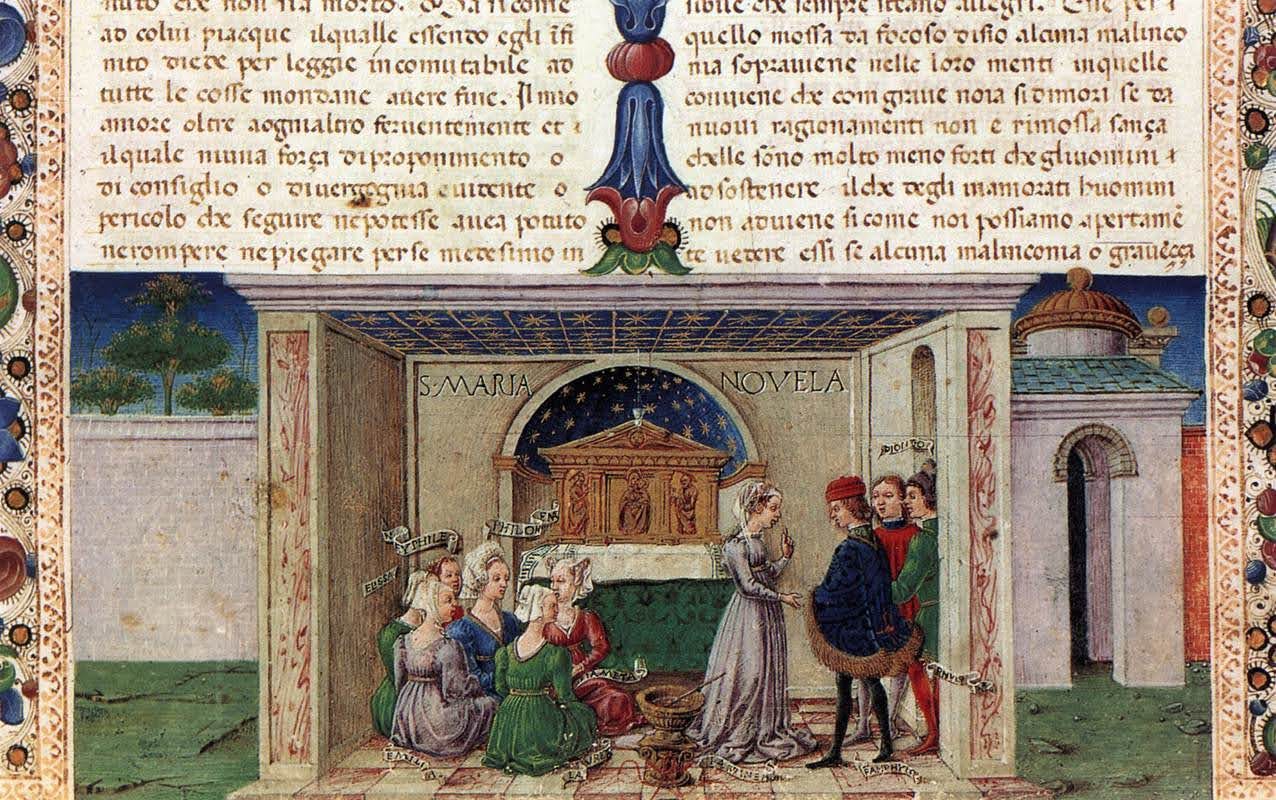 nito che non sia morto. Ma si come
ad colui piacque ilqualle essendo egli ifi
nito diede per leggie incomutabile ad
tutte le cosse mondane avere fine. Il mio
amore oltre aogni altro ferventemente et
ilquale niuna força di proponimento o
di consiglio o di vergogna evidente o
pericolo che seguire ne potesse avea potuto
ne rompere ne piegare per se medesimo in
sibile che sempre steano allegri. Che per
quello mossa da focoso disio alcuna malinco
nia sopraviene nelle loro menti inquelle
conviene che con grave noia si dimori se da
nuovi ragionamenti non e rimossa sança
chelle sono molto meno forti che gli uomini
ad sostenere il che degli inamorati huomini
non adviene si come noi possiamo apertame
te vedere essi se alcuna malinconia o graveçça
S·MARIA NOVELA
DIONEO
NYPHILE
PHILOMENA
ELISSA
FIAMETA
EMILIA
LAURE
LA
PAMPHYLO